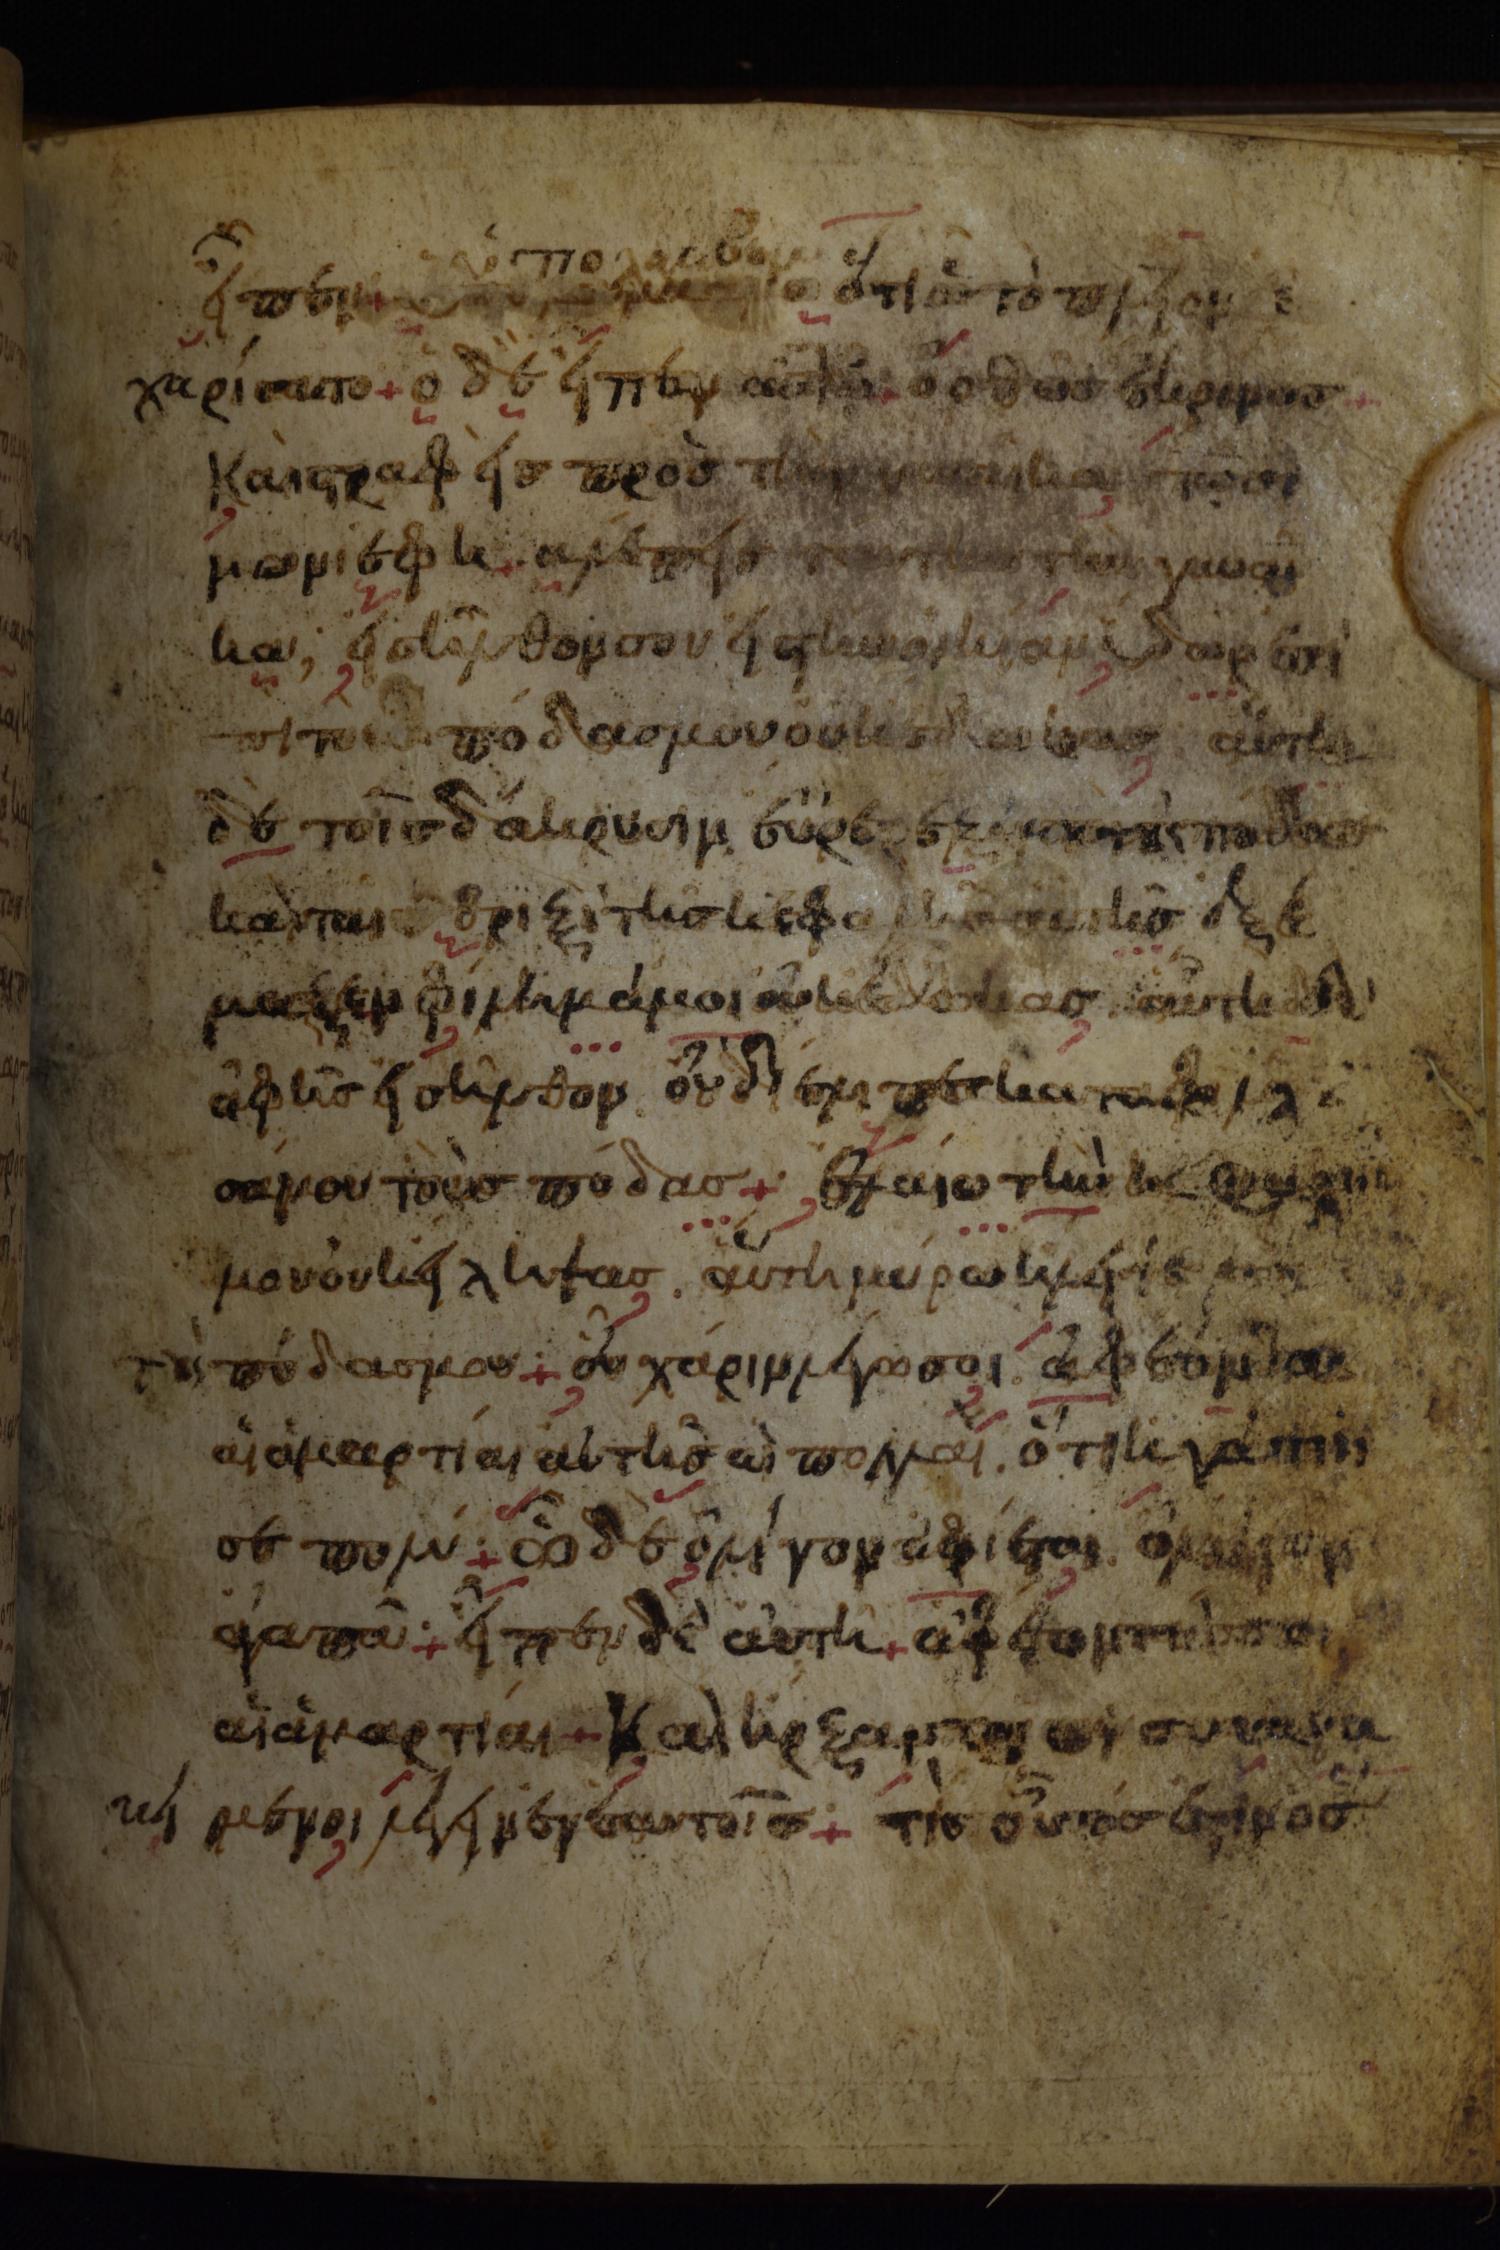 ὑπολαμβάνω
ἥπεν ὅτι ὧ τὸ πλῆον ἐ
χαρίσατο + ὁ δὲ ἥπεν αὐτῶ + ὀρθῶς ἔκρινας +
Καὶ στραφῆς πρὸς τὴν γυναῖκα τῶ σι
μωνι ἔφη + βλέπης ταύτην τὴν γυναῖ
κα; ἠσῆλθον σου ἠς τὴν οἰκίαν ὕδωρ ἐπὶ
τους πόδας μου οὐκ ἔδωκας. αὐτη
δὲ τοῖς δάκρυσιν ἔβρεξέν μου τοὺς πόδας
καὶ ταις θριξὶ τῆς κεφαλῆς αὐτῆς ἐξέ
μαξεν φίλημά μοι οὐκ ἔδωκας. αὕτη δὲ
ἀφ ἧς ἠσῆλθον. οὐ διέλιπεν καταφιλοῦ
σά μου τοὺς πόδας + ἐλαίω τὴν κεφαλήν
μου οὐκ ἤληψας. αὕτη μύρω ἤληψέ μου
τοὺς πόδας μου + οὗ χάριν λέγω σοι. ἀφέωνται
αἱ ἁμαρτίαι αὐτῆς αἱ πολλαί. ὅτι ἠγάπησεν
σε πολύ + ὧ δὲ ὀλίγον ἀφίεται. ὀλίγον
ἀγαπᾶ + ἥπεν δὲ αὐτῆ + ἀφέωνταί σοι
αἱ ἁμαρτίαι + Καὶ ἤρξαντο οἱ συνανα
κήμενοι λέγην ἐν ἑαυτοῖς + τίς οὗτός ἐστιν ὃς